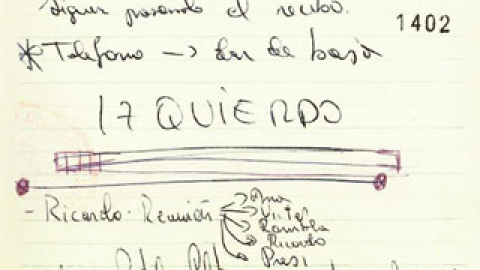 siguen pasando el recibo.
1402
* Teléfono → dar de baja
17 QUIERDO
- Ricardo - Reunión → Ana
→ Viter
→ Rambla
→ Ricardo
→ Presi